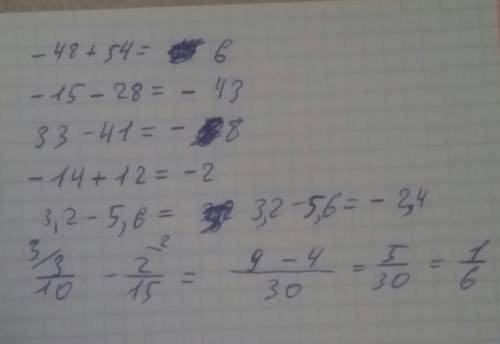 -48+54= 6
-15-28= - 43
33-41= - 8
-14+12= -2
3,2-5,6= 3,2-5,6= - 2,4
3/3/10 - 2/15 -2 = 9-4/30 = 5/30 = 1/6